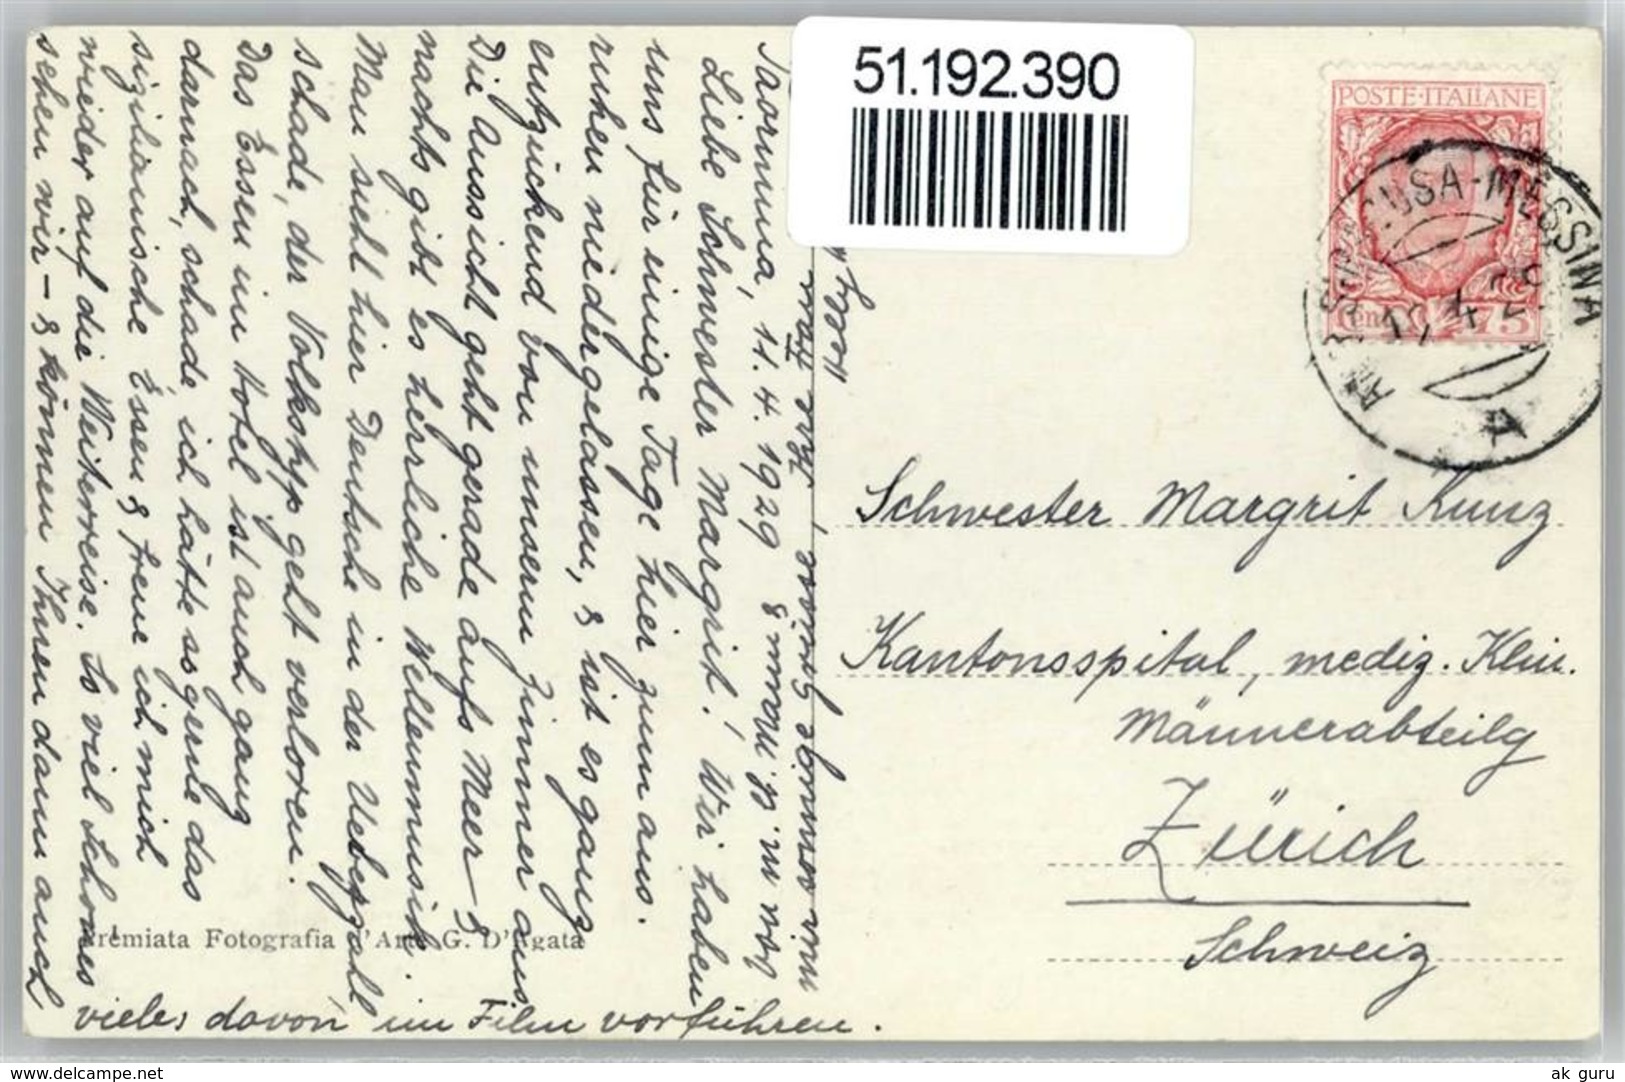 51.192.390
POSTE·ITALIANE
75
SIRACUSA-MESSINA
A
Taormina, 11.4.1929
Liebe Schwester Margrit! Wir haben
uns für einige Tage hier zum aus-
ruhen niedergelassen, & ist es ganz
entzückend von unserm Zimmer aus.
Die Aussicht geht gerade aufs Meer – &
nachts gibt es herrliche Wellenmusik.
Man sieht hier Deutsche in der Ueberzahl
schade, der Volkstyp geht verloren.
Das Essen im Hotel ist auch ganz
darnach, schade ich hätte so gerne das
sizilianische Essen & freue ich mich
wieder auf die Weiterreise. So viel Schönes
sehen wir – & können Ihnen dann auch
vieles davon im Film vorführen.
& von m. l. Mann
nur sonnige Grüsse, Ihre
Schwester Margrit Kunz
Kantonsspital, mediz. Klin.
Männerabteilg
Zürich
Schweiz
Premiata Fotografia d'Arte G. D'Agata
www.ansichtskartenversand.com
ak guru